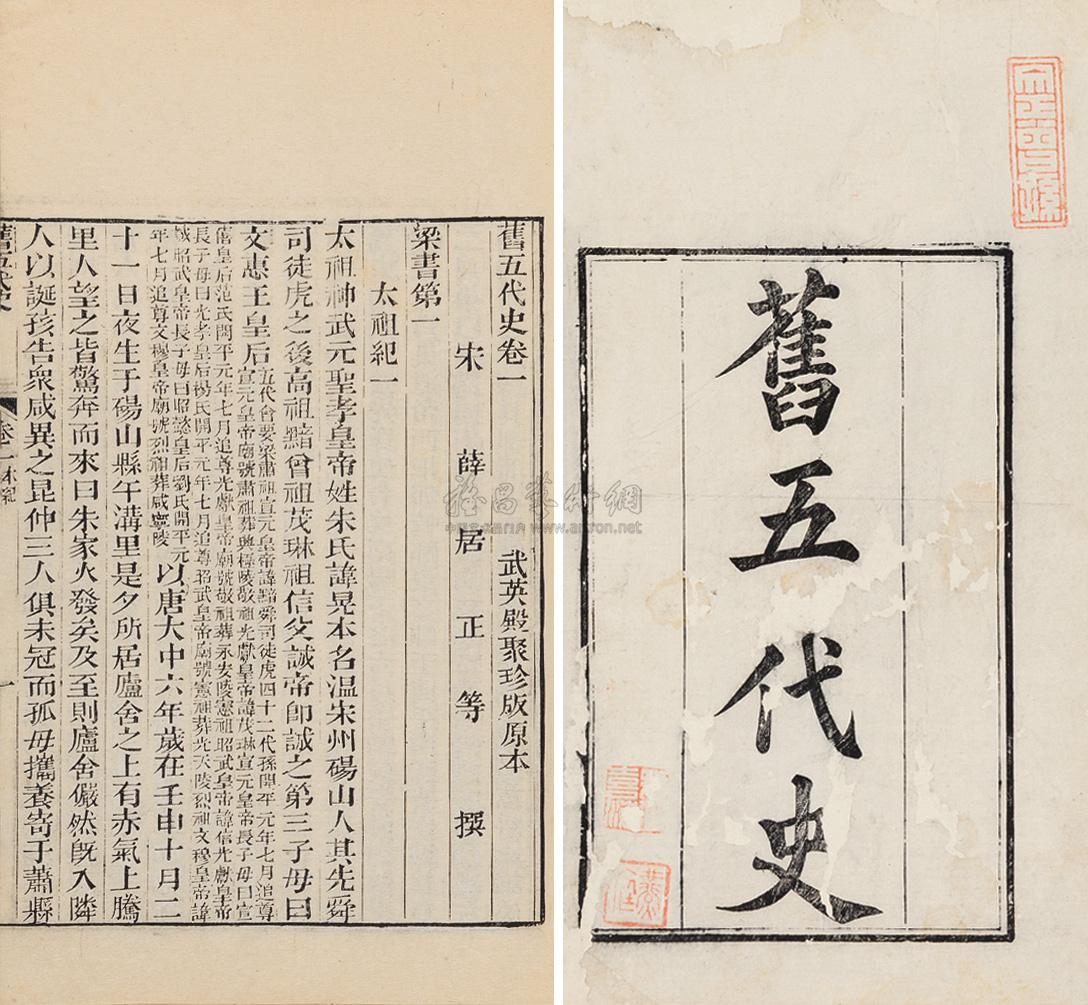 舊五代史
舊五代史卷一 武英殿聚珍版原本
宋 薛居正等撰
梁書第一
太祖紀一
太祖神武元聖孝皇帝姓朱氏諱晃本名溫宋州碭山人其先舜
司徒虎之後高祖黯曾祖茂琳祖信父誠帝卽誠之第三子母曰
文惠王皇后
五代會要梁肅祖宣元皇帝諱黯舜司徒虎四十二代孫開平元年七月追尊
宣元皇帝廟號肅祖葬興極陵敬祖光獻皇帝諱茂琳宣元皇帝長子母曰宣
僖皇后范氏開平元年七月追尊光獻皇帝廟號敬祖葬永安陵憲祖昭武皇帝諱信光獻皇帝
長子母曰光孝皇后楊氏開平元年七月追尊昭武皇帝廟號憲祖葬光天陵烈祖文穆皇帝諱
誠昭武皇帝長子母曰昭懿皇后劉氏開平元
年七月追尊文穆皇帝廟號烈祖葬咸寧陵
以唐大中六年歲在壬申十月二
十一日夜生于碭山縣午溝里是夕所居廬舍之上有赤氣上騰
里人望之皆驚奔而來曰朱家火發矣及至則廬舍儼然旣入隣
人以誕孩告衆咸異之昆仲三人俱未冠而孤母攜養寄于蕭縣
舊五代史 卷一 本紀 一
雅昌藝術網
www.artron.net